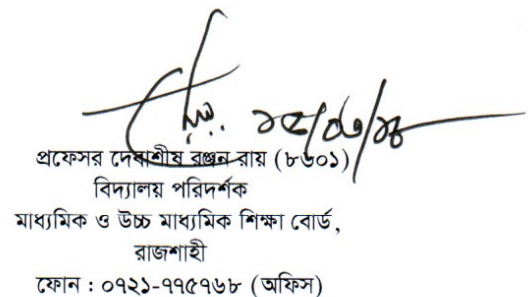 ১৫/০৬/১৮
প্রফেসর দেবাশীষ রঞ্জন রায় (৮৬০১)
বিদ্যালয় পরিদর্শক
মাধ্যমিক ও উচ্চ মাধ্যমিক শিক্ষা বোর্ড,
রাজশাহী
ফোন : ০৭২১-৭৭৫৭৬৮ (অফিস)